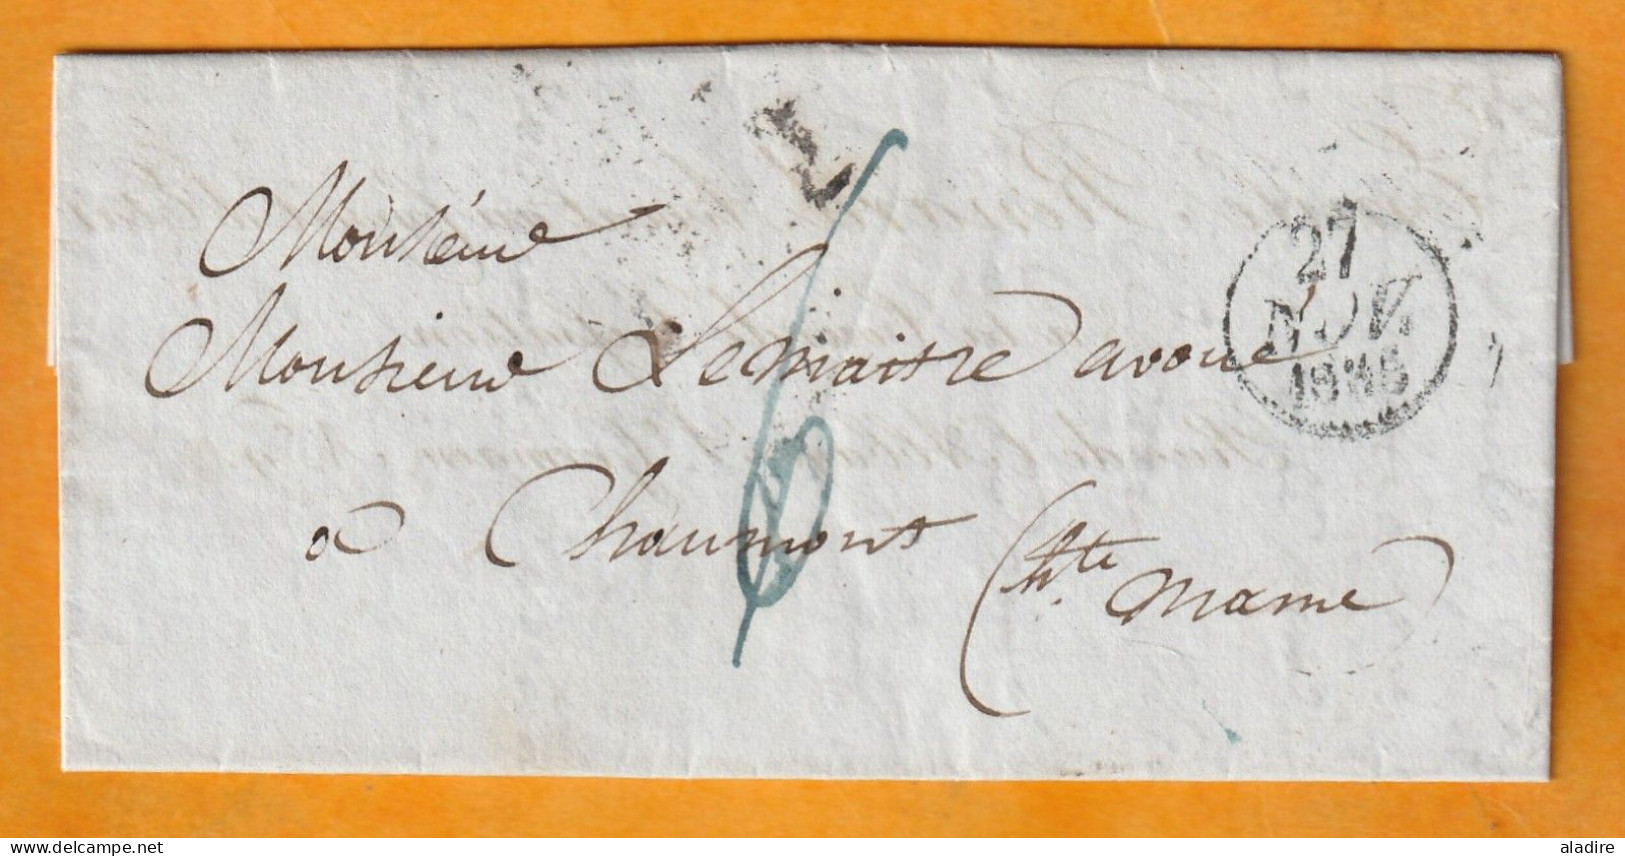 Monsieur
Monsieur Lemaitre avoué
à Chaumont
(hte. marne
6
27
NOV
delcampe.net
aladire